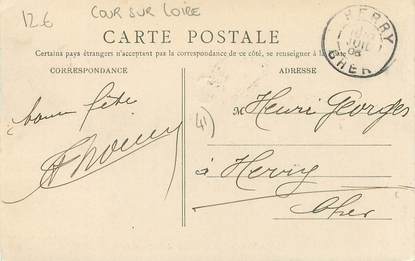 12€ COUR SUR LOIRE
HERRY
JUIL
08
CHER
CARTE POSTALE
Certains pays étrangers n'acceptant pas la correspondance de ce côté, se renseigner à la Poste
CORRESPONDANCE
ADRESSE
bonne fête
M Henri Georges
41
à Herry
Cher